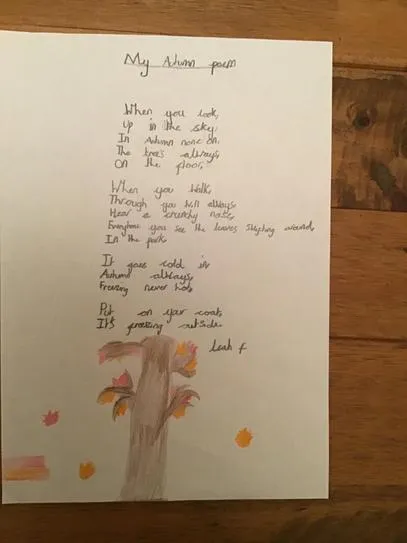 My Autumn poem
When you look,
Up in the sky
In Autumn none on.
The trees always,
On the floor,
When you walk,
Through you will always
Hear a crunchy noise,
Everytime you see the leaves around,
In the park.
It goes cold in
Autumn always,
Freezing never hot,
Put on your coats
It's freezing outside.
Leah f